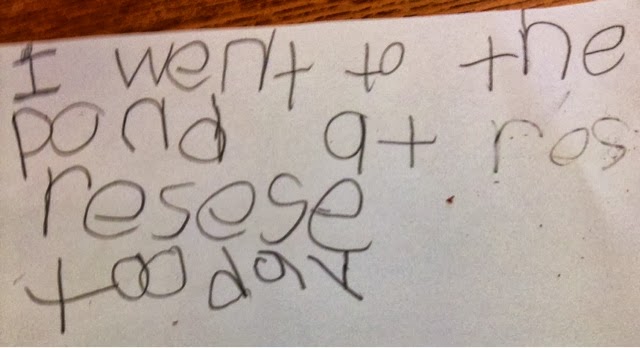 I went to the
pond at ros
resese
tooday